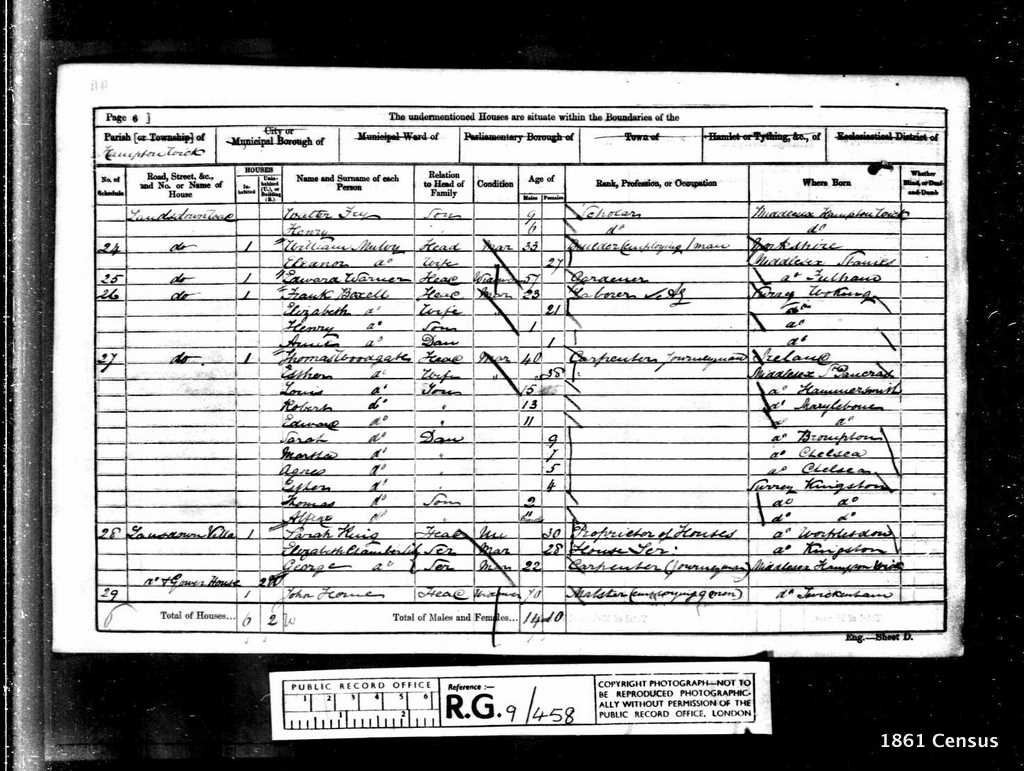 Page 6 ]
The undermentioned Houses are situate within the Boundaries of the
Parish [or Township] of
City or Municipal Borough of
Municipal Ward of
Parliamentary Borough of
Town of
Hamlet or Tything, &c., of
Ecclesiastical District of
Hampton Wick
No. of Schedule
Road, Street, &c., and No. or Name of House
HOUSES
Inhabited
Uninhabited (U.), or Building (B.)
Name and Surname of each Person
Relation to Head of Family
Condition
Age of
Males
Females
Rank, Profession, or Occupation
Where Born
Whether Blind, or Deaf-and-Dumb
Fry Son 9 Scholar Middlesex Hampton Wick
Henry 6 do do
24 do 1 William Head Mar 33 Builder (employing 1 man Yorkshire
Eleanor do Wife 27 Middlesex Staines
25 do 1 Edward Warner Head Widower 57 Gardener do Fulham
26 do 1 Frank Head Mar 23 Laborer Woking
Elizabeth do Wife 21 do
Henry do Son 1 do
do Dau 1 do
27 do 1 Thomas Woodgate Head Mar 40 Carpenter Journeyman Ireland
Esther do Wife 38 Middlesex St Pancras
Louis do Son 15 do Hammersmith
Robert do " 13 do Marylebone
Edward do " 11 do do
Sarah do Dau 9 do Brompton
Martha do " 7 do Chelsea
Agnes do " 5 do Chelsea
Esther do " 4 Surrey Kingston
Thomas do Son 2 do do
Alfred do do do
28 Lansdown Villa 1 Sarah King Head Un 30 Proprietor of Houses do Worplesdon
Elizabeth Chamberlin Ser Mar 28 House Ser: do Kingston
George do Ser Mar 22 Carpenter (journeyman) Middlesex Hampton Wick
do & Gower House
29 1 John Head Widower 70 Malster (employing 9 men) do Twickenham
Total of Houses... 6 2
Total of Males and Females... 14 10
Eng.—Sheet D.
PUBLIC RECORD OFFICE
1 2 3 4 5 6
1 2
Reference :—
R.G. 9/458
COPYRIGHT PHOTOGRAPH—NOT TO
BE REPRODUCED PHOTOGRAPHIC-
ALLY WITHOUT PERMISSION OF THE
PUBLIC RECORD OFFICE, LONDON
1861 Census